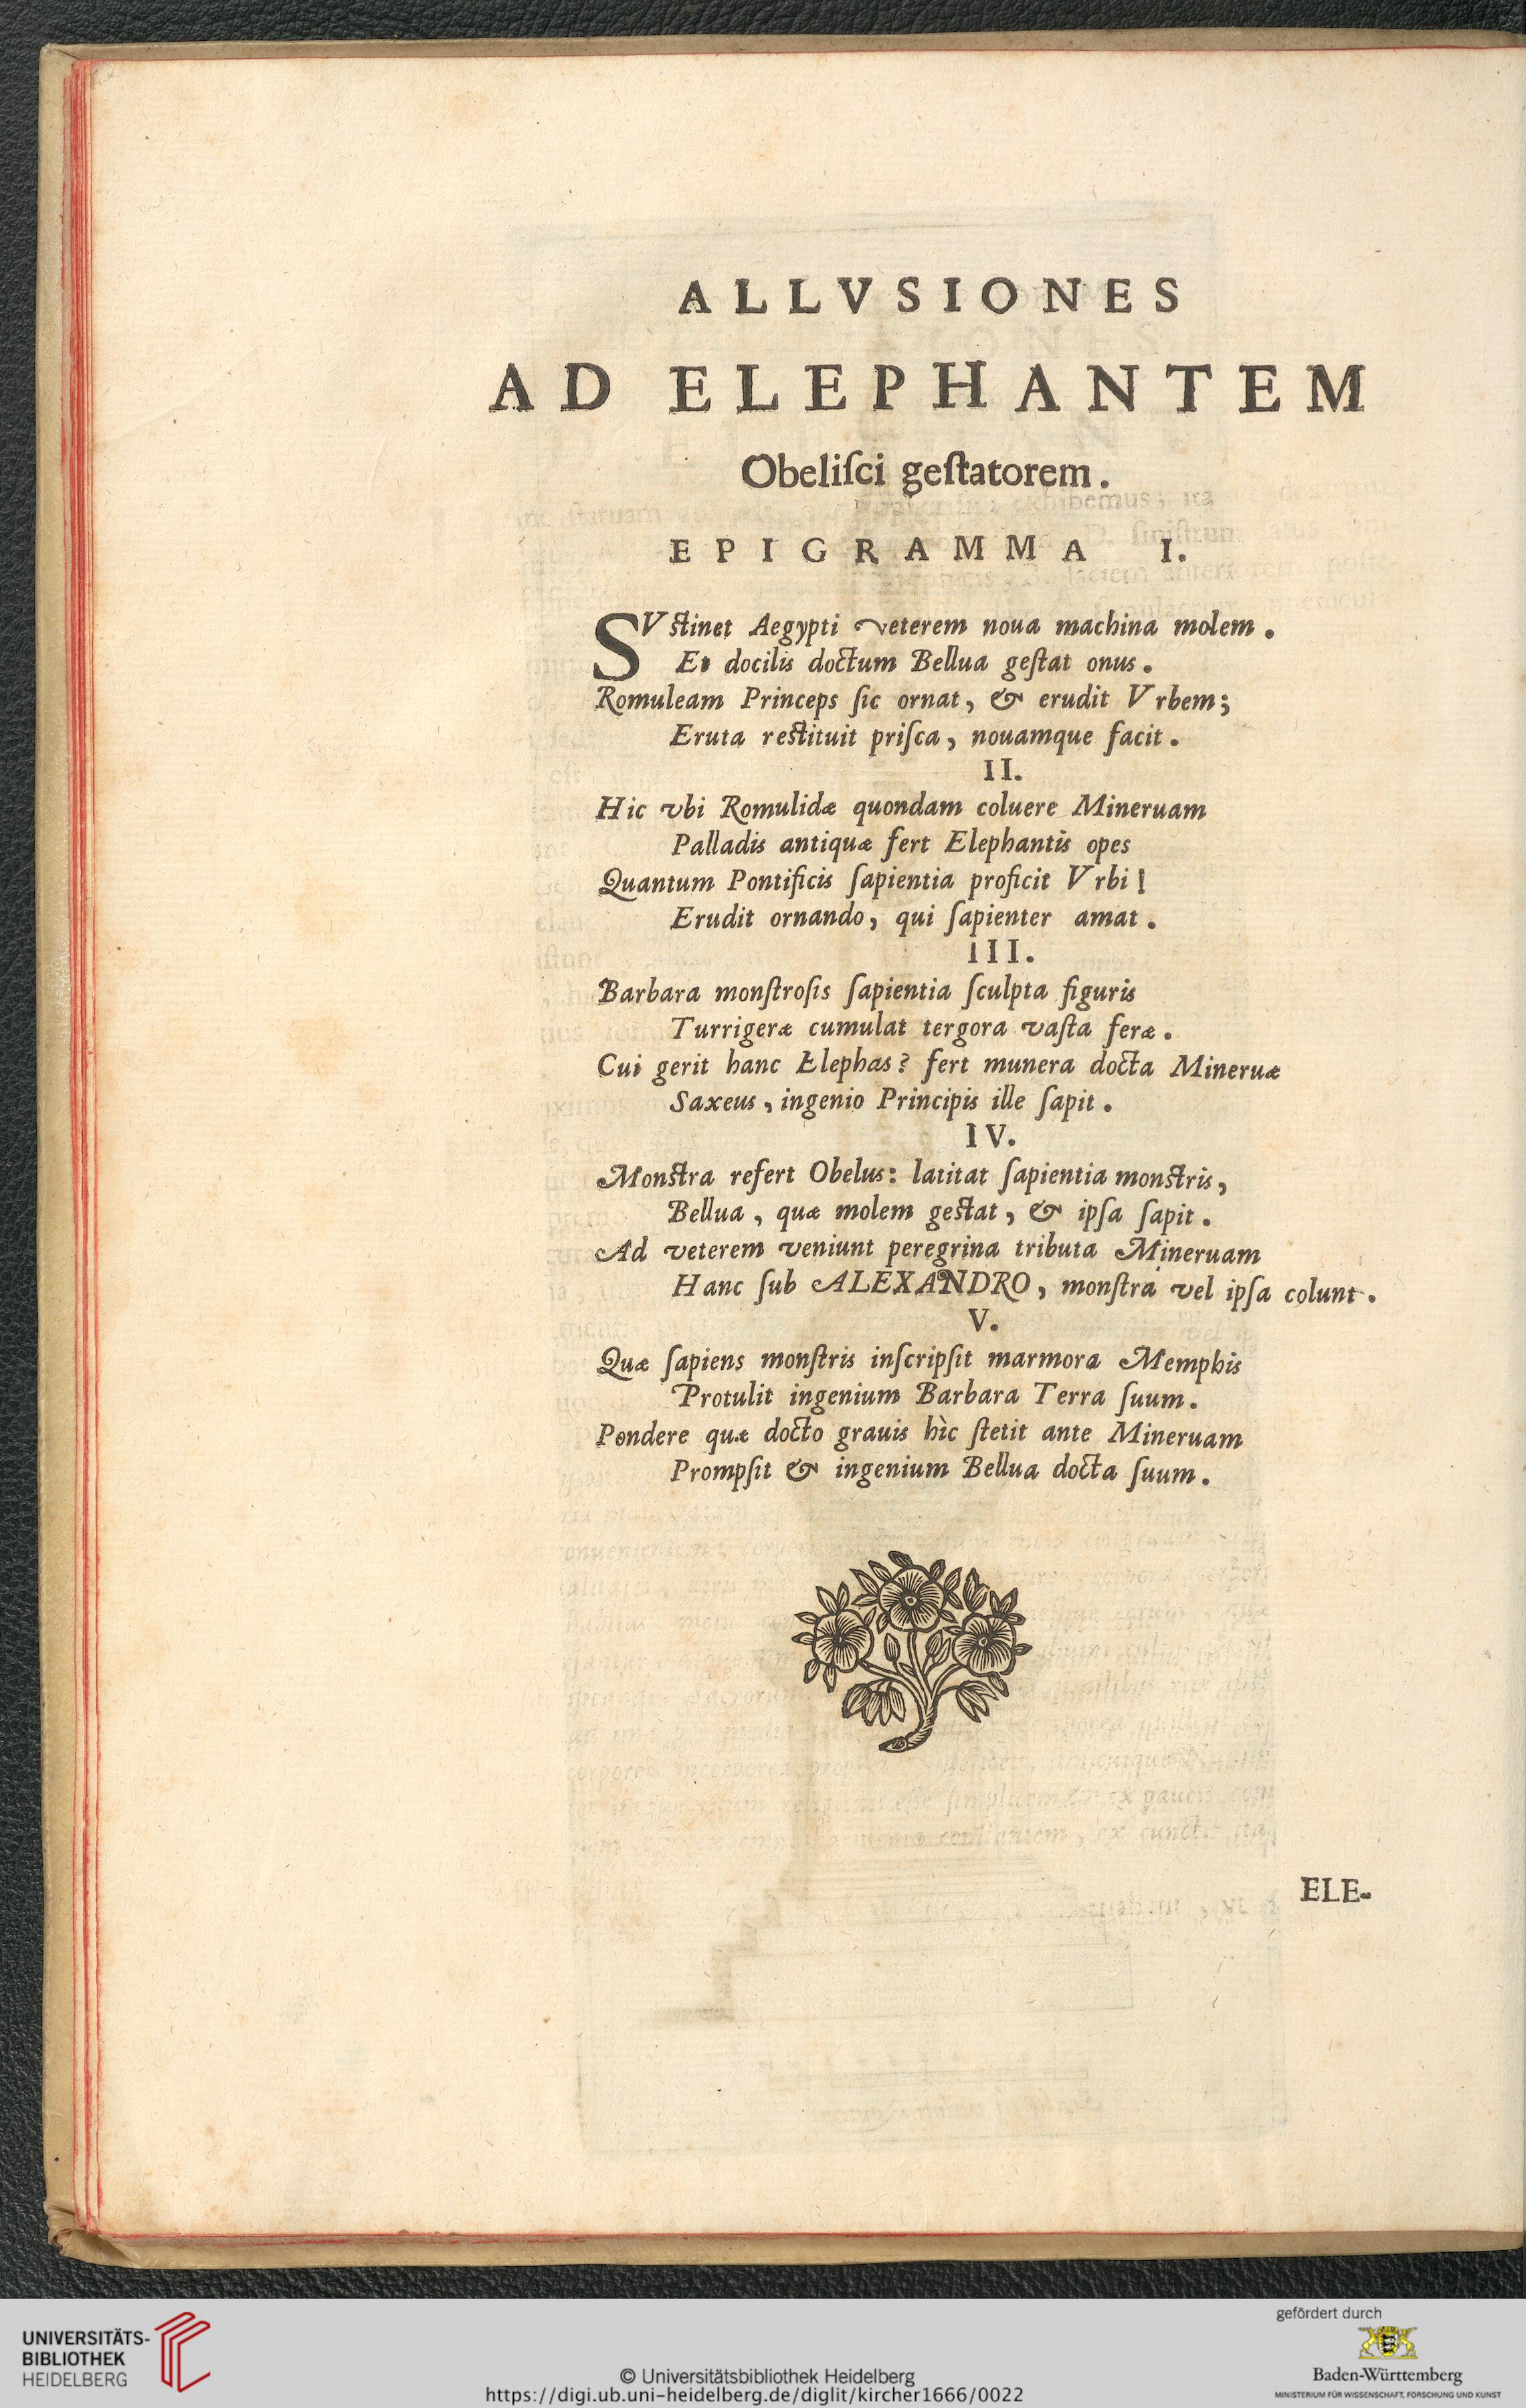 ALLVSIONES
AD ELEPHANTEM
Obeliſci geſtatorem.
EPIGRAMMA I.
SVſtinet Aegypti veterem noua machina molem.
Et docilis doctum Bellua geſtat onus.
Romuleam Princeps ſic ornat, & erudit Vrbem;
Eruta reſtituit priſca, nouamque facit.
II.
Hic vbi Romulidæ quondam coluere Mineruam
Palladis antiquæ fert Elephantis opes
Quantum Pontificis ſapientia proficit Vrbi!
Erudit ornando, qui ſapienter amat.
III.
Barbara monſtroſis ſapientia ſculpta figuris
Turrigeræ cumulat tergora vaſta feræ.
Cui gerit hanc Elephas? fert munera docta Mineruæ
Saxeus, ingenio Principis ille ſapit.
IV.
Monſtra refert Obelus: latitat ſapientia monſtris,
Bellua, quæ molem geſtat, & ipſa ſapit.
Ad veterem veniunt peregrina tributa Mineruam
Hanc ſub ALEXANDRO, monſtra vel ipſa colunt.
V.
Quæ ſapiens monſtris inſcripſit marmora Memphis
Protulit ingenium Barbara Terra ſuum.
Pondere quæ docto grauis hìc ſtetit ante Mineruam
Prompſit & ingenium Bellua docta ſuum.
ELE-
UNIVERSITÄTS-
BIBLIOTHEK
HEIDELBERG
© Universitätsbibliothek Heidelberg
https://digi.ub.uni-heidelberg.de/diglit/kircher1666/0022
gefördert durch
Baden-Württemberg
MINISTERIUM FÜR WISSENSCHAFT, FORSCHUNG UND KUNST